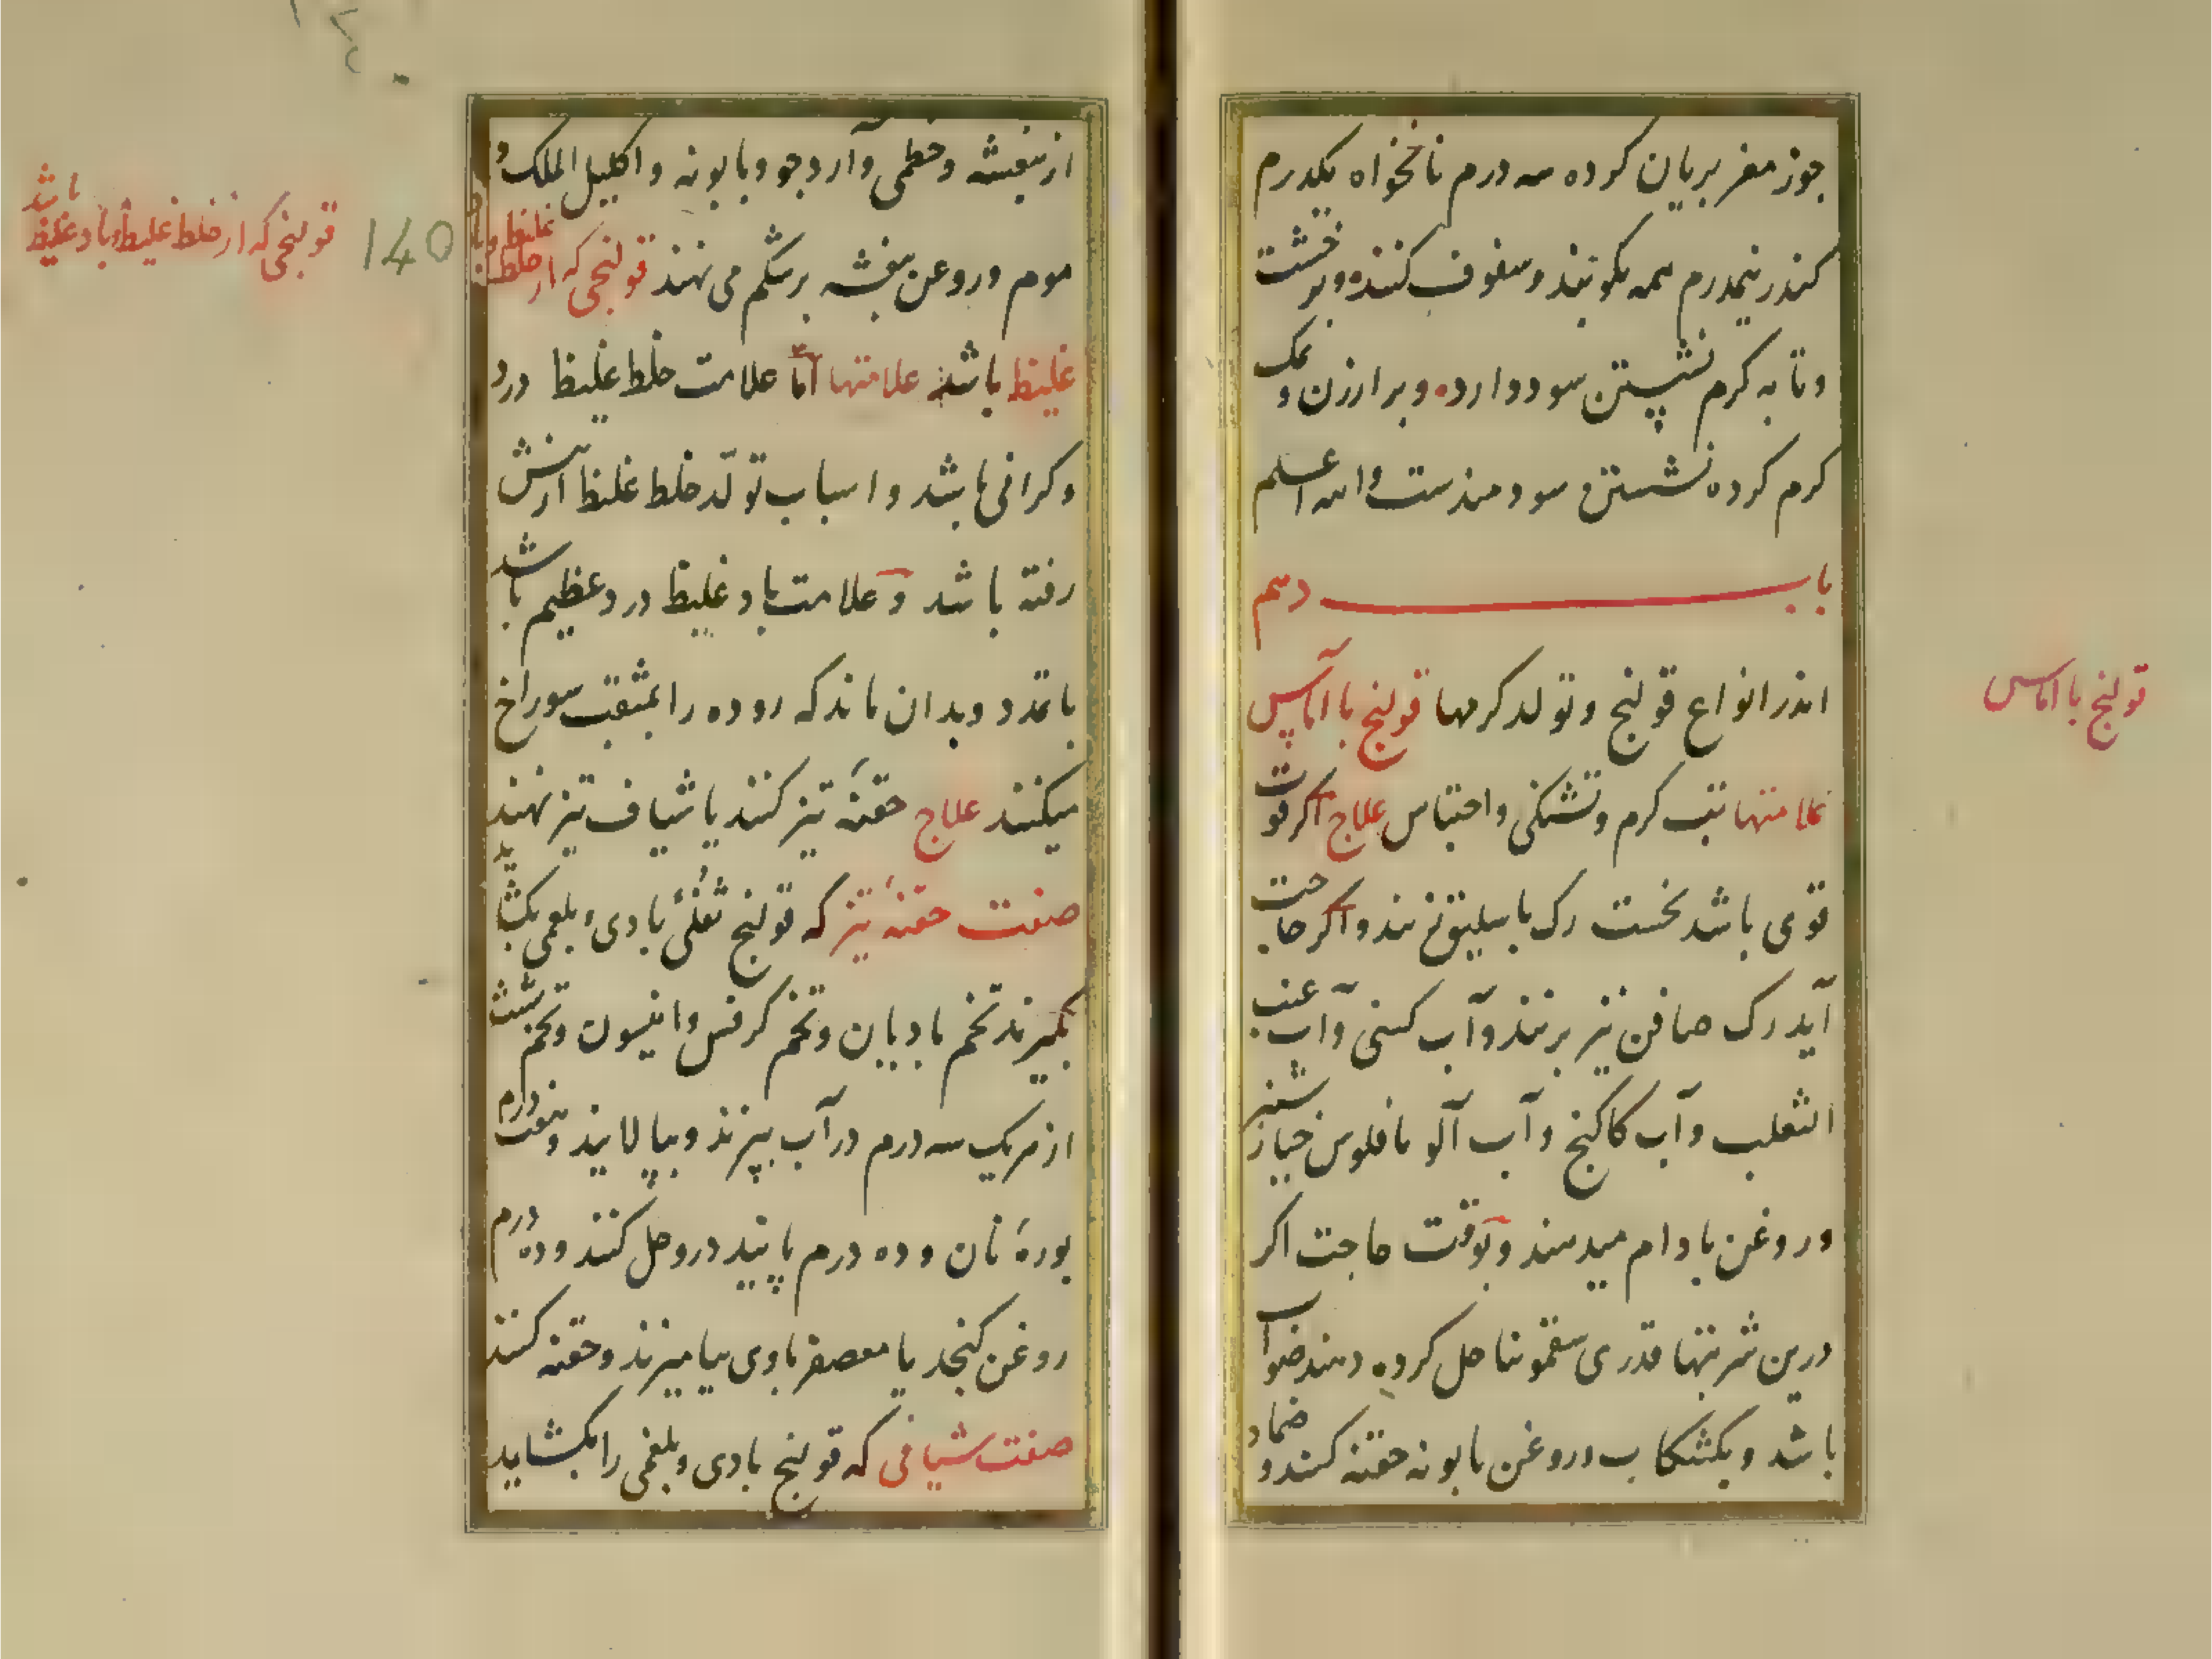 جوز مغز بریان کرده سه درم نانخواه یکدرم
کندر نیمدرم همه بکوبند و سفوف کنند و بر خشت
و تابه کرم نشستن سود دارد و بر ارزن و نمک
کرم کرده نشستن سودمندست والله اعلم
باب دهم
اندر انواع قولنج و تولد کرمها قولنج با آماس
علامتها تب کرم و تشنکی و احتباس علاج اکر قوت
قوی باشد نخست رک باسلیق زنند و اکر حاجت
آید رک صافن نیز بزنند و آب کسنی و آب عنب
الثعلب و آب کاکنج و آب آلو با فلوس خیار شنبر
و روغن بادام میدهند و بوقت حاجت اکر
درین شربتها قدری سقمونیا حل کرده دهند صواب
باشد و بکشکاب و روغن بابونه حقنه کنند و ضماد
قولنج با آماس
از بنفشه و خطمی و آرد جو و بابونه و اکلیل الملک و
موم و روغن بنفشه بر شکم می نهند قولنجی که از خلط غلیظ و باد
غلیظ باشد علامتها اما علامت خلط غلیظ درد
و کرانی باشد و اسباب تولد خلط غلیظ از پیش
رفته باشد و علامت باد غلیظ درد عظیم باشد
با تمدد و بدان ماند که روده را بمثقب سوراخ
میکنند علاج حقنهٔ تیز کنند یا شیاف تیز نهند
صفت حقنهٔ تیز که قولنج ثفلی و بادی و بلغمی بکشاید
بکیرند تخم بادیان و تخم کرفس و انیسون و تخم شبت
از هریک سه درم در آب بپزند و بپالایند و هفت درم
بورهٔ نان و ده درم پانید درو حل کنند و ده درم
روغن کنجد یا معصفر باوی بیامیزند و حقنه کنند
صفت شیافی که قولنج بادی و بلغمی را بکشاید
قولنجی که از خلط غلیظ و باد غلیظ باشد
140